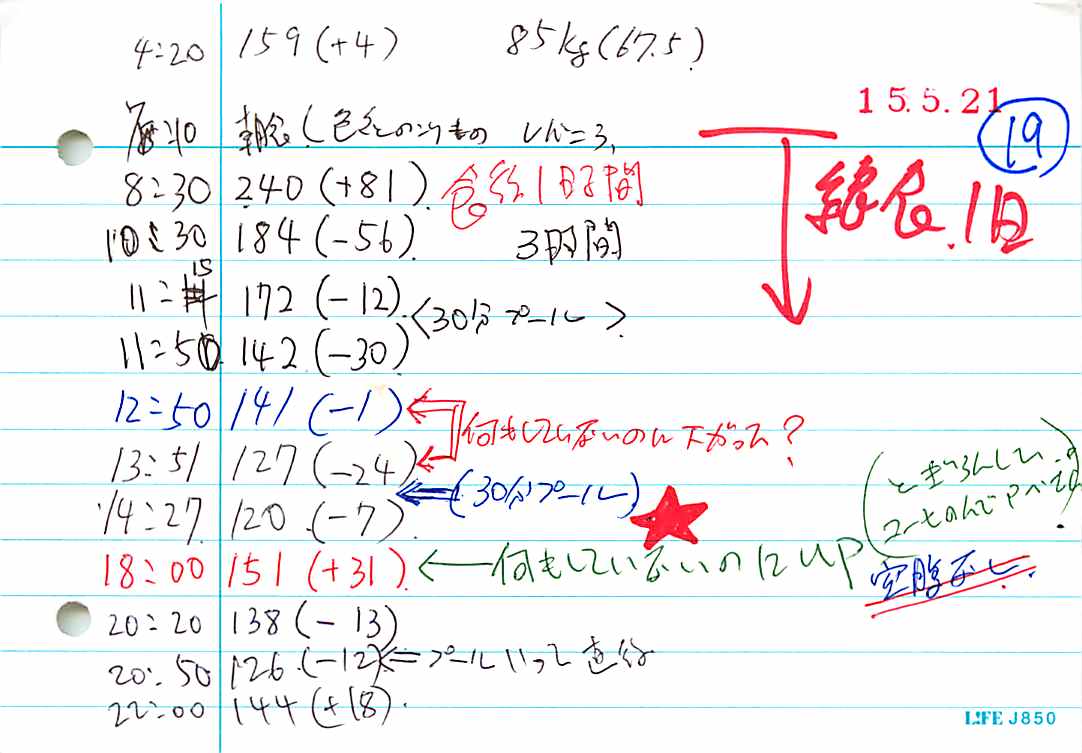 4:20 159 (+4) 85kg (67.5)
15.5.21
:40 朝食 (
19
8:30 240 (+81). 食後1時間
絶食.1日
10:30 184 (-56). 3時間
15
11: 172 (-12).
<30分プール>
11:50 142 (-30)
12:50 141 (-1)
何もしていないのに下がった?
13:51 127 (-24)
(30分プール)
14:27 120 (-7)
18:00 151 (+31). ← 何もしていないのにup
空腹なし
20:20 138 (-13)
20:50 126 (-12) ⇐ プールいって直後
22:00 144 (+18).
LIFE J850